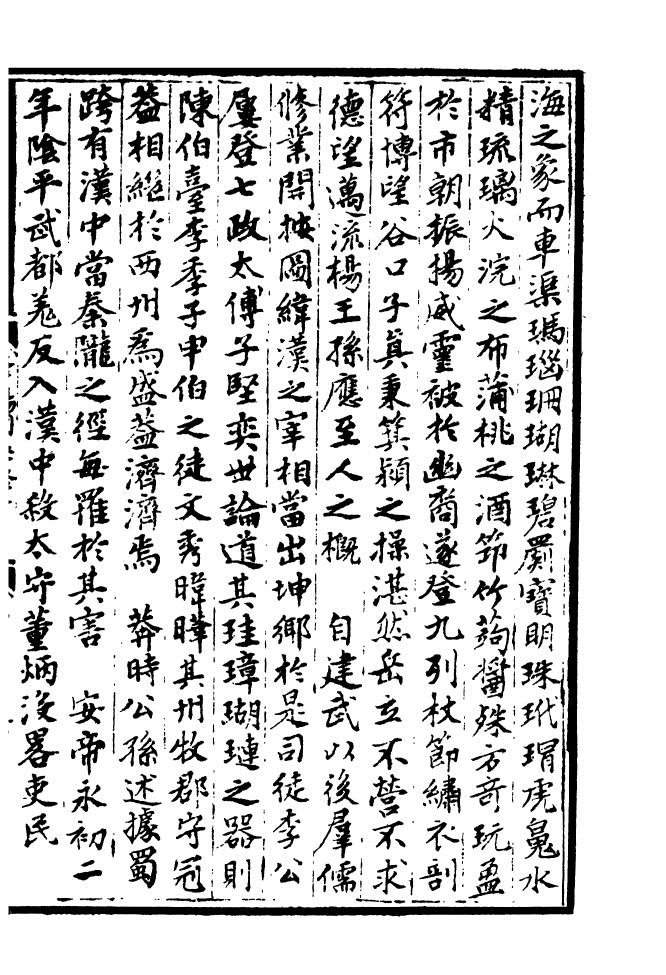 海之象而車渠瑪瑙珊瑚琳碧罽寶明珠玳瑁虎鼻水
精琉璃火浣之布蒲桃之酒筇竹蒟醬殊方奇玩盈
於市朝振揚威靈被於幽裔遂登九列杖節繡衣剖
符博望谷口子真秉箕潁之操湛然岳立不營不求
德望邁流楊王孫應至人之概　自建武以後羣儒
修業開按圖緯漢之宰相當出坤鄉於是司徒李公
屢登七政太傅子堅奕世論道其珪璋瑚璉之器則
陳伯臺李季子申伯之徒文秀暐曄其州牧郡守冠
蓋相繼於西州爲盛蓋濟濟焉　莽時公孫述據蜀
跨有漢中當秦隴之徑每罹於其害　安帝永初二
年陰平武都羌反入漢中殺太守董炳没畧吏民